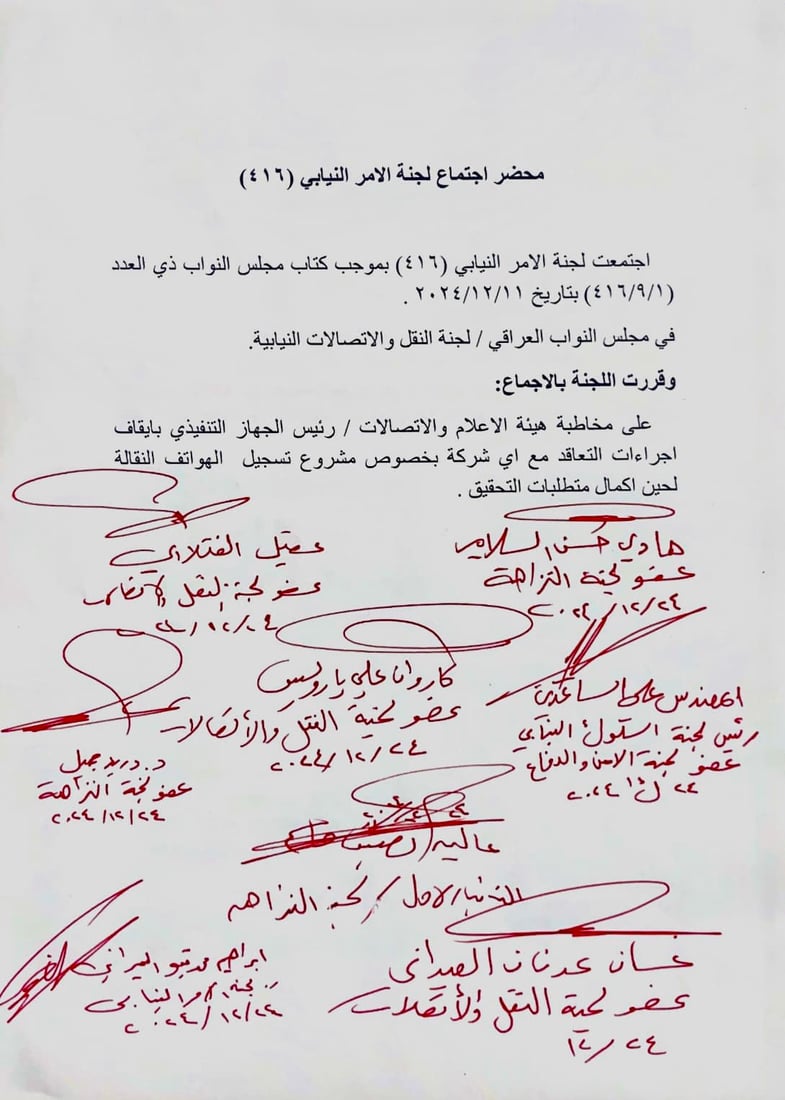 محضر اجتماع لجنة الامر النيابي (٤١٦)
اجتمعت لجنة الامر النيابي (٤١٦) بموجب كتاب مجلس النواب ذي العدد
(٤١٦/٩/١) بتاريخ ٢٠٢٤/١٢/١١ .
في مجلس النواب العراقي / لجنة النقل والاتصالات النيابية.
وقررت اللجنة بالاجماع:
على مخاطبة هيئة الاعلام والاتصالات / رئيس الجهاز التنفيذي بايقاف
اجراءات التعاقد مع اي شركة بخصوص مشروع تسجيل الهواتف النقالة
لحين اكمال متطلبات التحقيق .
هادي حسن السلامي
عضو لجنة النزاهة
٢٠٢٤/١٢/٢٤
عقيل الفتلاوي
عضو لجنة النقل
٢٤/١٢/٢٤
كاروان علي يارويس
عضو لجنة النقل والأتصالات
٢٠٢٤/١٢/٢٤
المهندس علي الساعدي
رئيس لجنة
عضو لجنة الامن والدفاع
٢٤ ك١ ٢٠٢٤
د. دريد جميل
عضو لجنة النزاهة
٢٠٢٤/١٢/٢٤
عالية نصيف
لجنة النزاهه
غسان عدنان العيداني
عضو لجنة النقل والأتصالات
١٢/٢٤
ابراهيم
النيابي
٢٠٢٤/١٢/٢٤